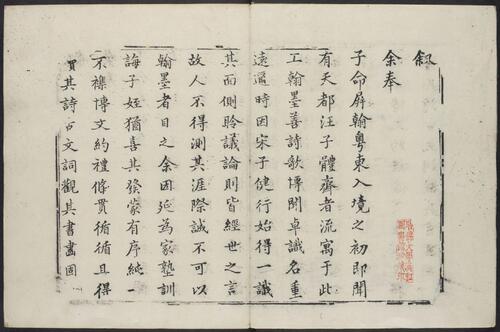 叙
余奉
子命屏翰粤東入境之初即聞
有天都汪子體齋者流寓于此
工翰墨善詩歌博聞卓識名重
遠邇時因宋子健行始得一識
其面側聆議論則皆經世之言
故人不得測其涯際誠不可以
翰墨者目之余因延為家塾訓
誨子姪猶喜其發蒙有序純一
不襍博文約禮條貫循循且得
買其詩古文詞觀其書畫圖